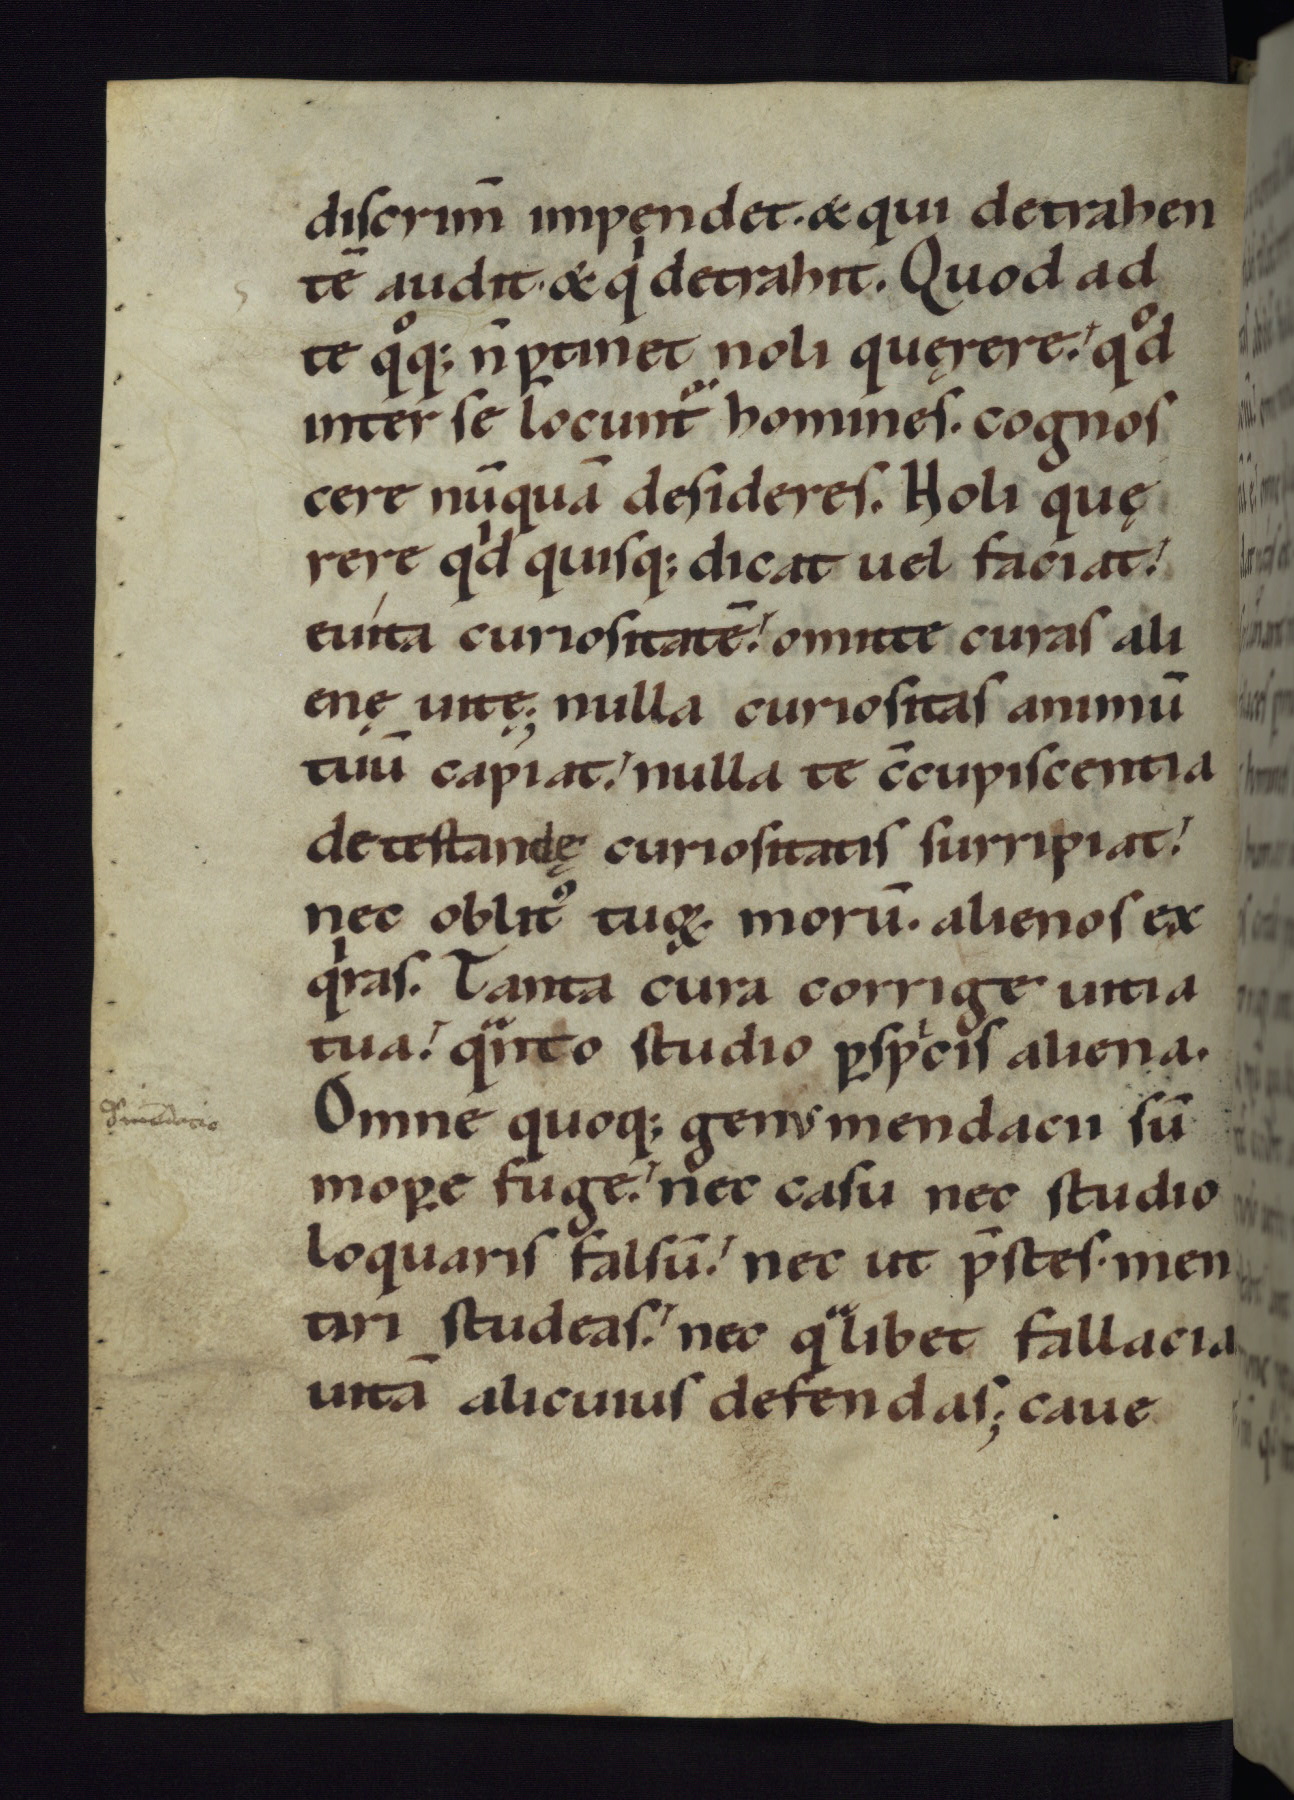 discrim̄ impendet. & qui detrahen
tē audit. & qͥ detrahit. Quod ad
te qͦq; n̄ ꝑtinet noli quęrere. qͦd
inter se locunt᷑ homines. cognos
cere nūquā desideres. Noli quę
rere qͥd quisq; dicat uel faciat.
euita curiositatē. omitte curas ali
enę uitę; nulla curiositas animū
tuū capiat. nulla te c̄cupiscentia
detestandę curiositatis surripiat.
nec oblitꝰ tuoꝝ morū. alienos ex
qͥras. Tanta cura corrige uitia
tua. qͣnto studio ꝑspͥcis aliena.
De mēdacio
Omne quoq; genus mendacii sū
moꝑe fuge. nec casu nec studio
loquaris falsū. nec ut p̄stes. men
tiri studeas. nec qͣlibet fallacia
uitā alicuius defendas; caue